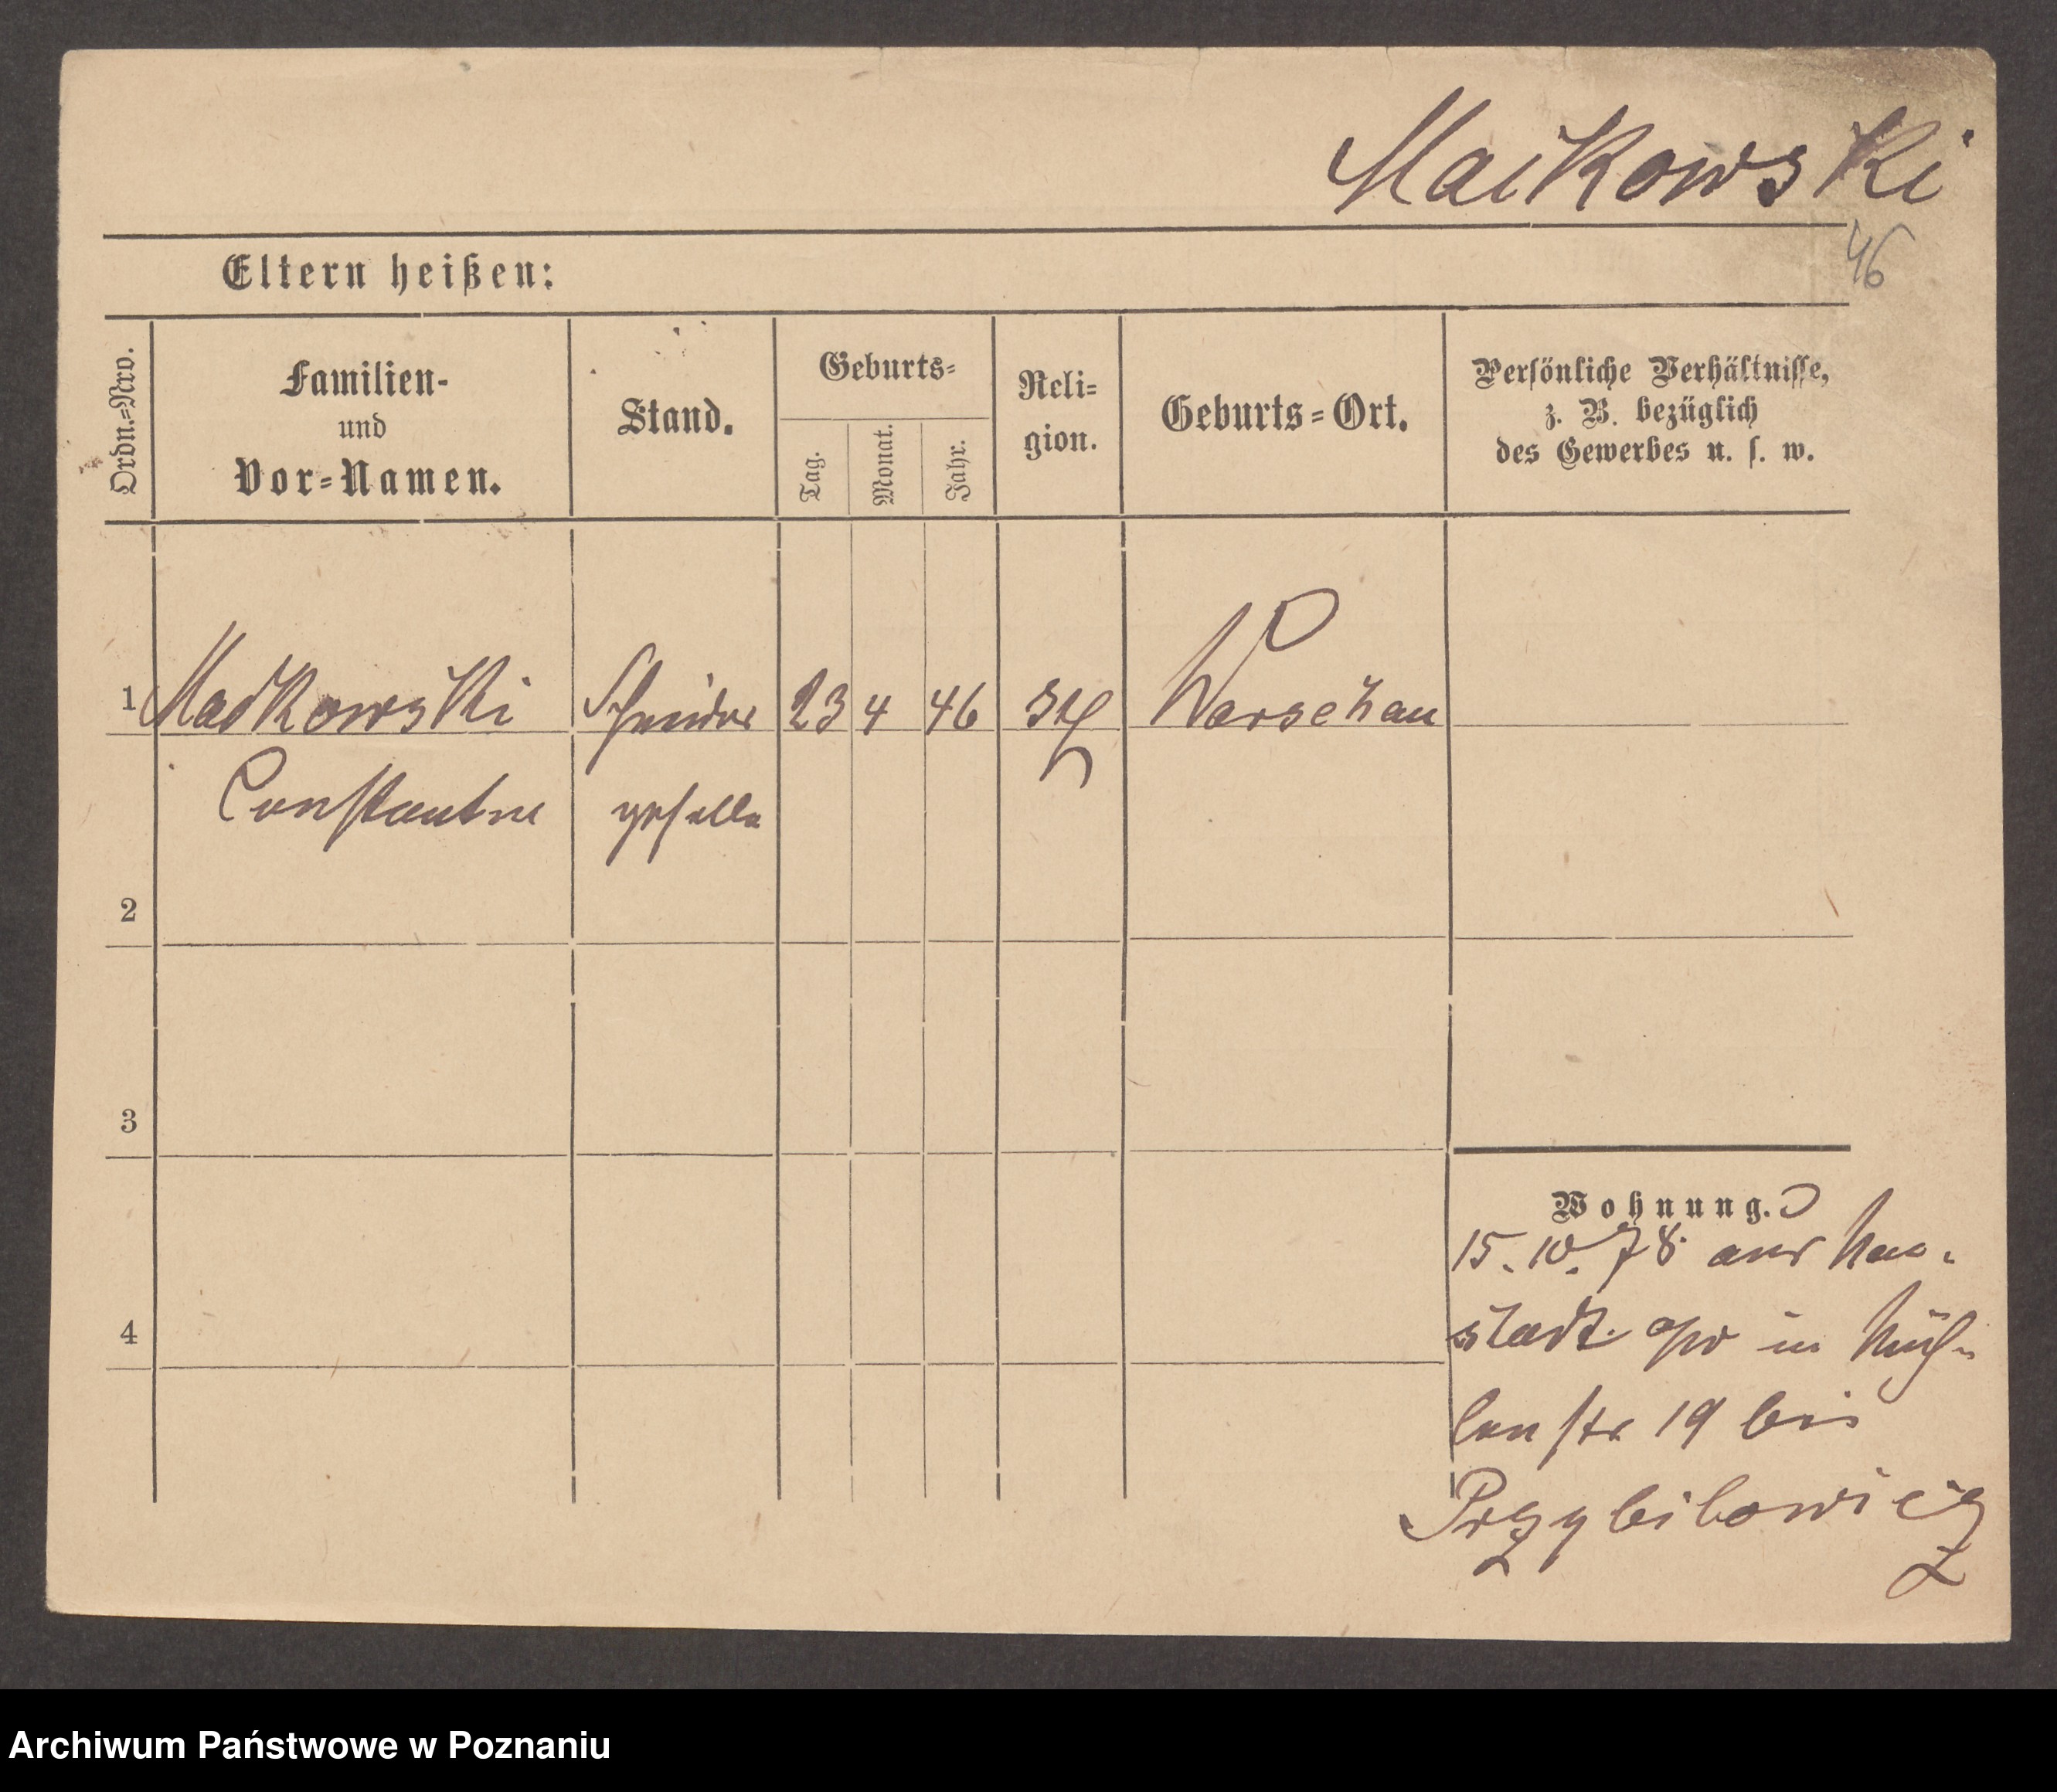 Maikowski
46
Eltern heißen:
Ordn.=Nro.
Familien-
und
Vor=Namen.
Stand.
Geburts=
Tag.
Monat.
Jahr.
Reli=
gion.
Geburts=Ort.
Persönliche Verhältnisse,
z. B. bezüglich
des Gewerbes u. s. w.
1 Maikowski Schneider 23 4 46 Warschau
Constantin geselle
2
3
4
Wohnung.
15. 10. 78 aus Neu-
stadt in Müh-
lenstr 19 bei
Przybilowicz
Archiwum Państwowe w Poznaniu